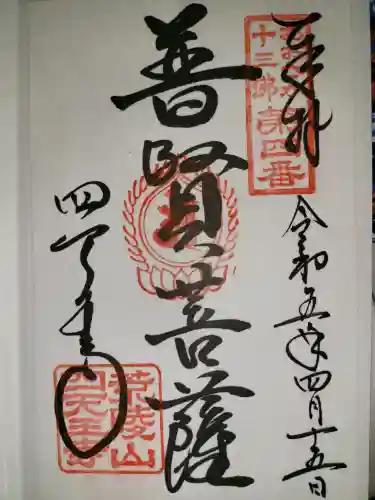 奉拝
おおさか
十三佛第四番
令和五年四月十五日
普賢菩薩
四天王寺
荒陵山
四天王寺